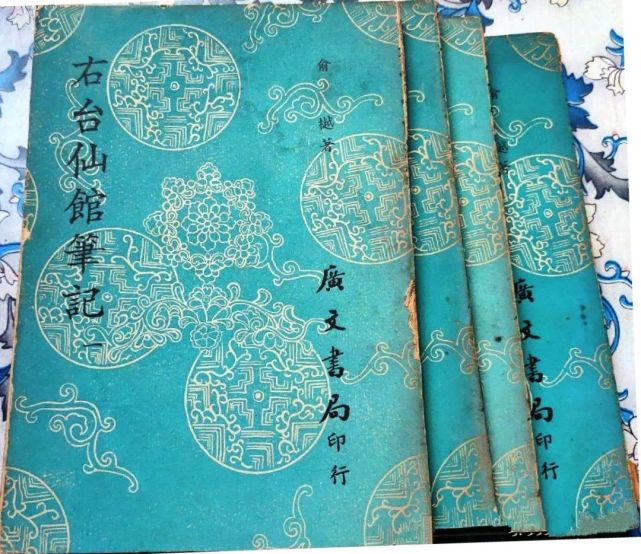 右台仙館筆記 一
俞樾著
廣文書局印行
俞樾著
廣文書局印行